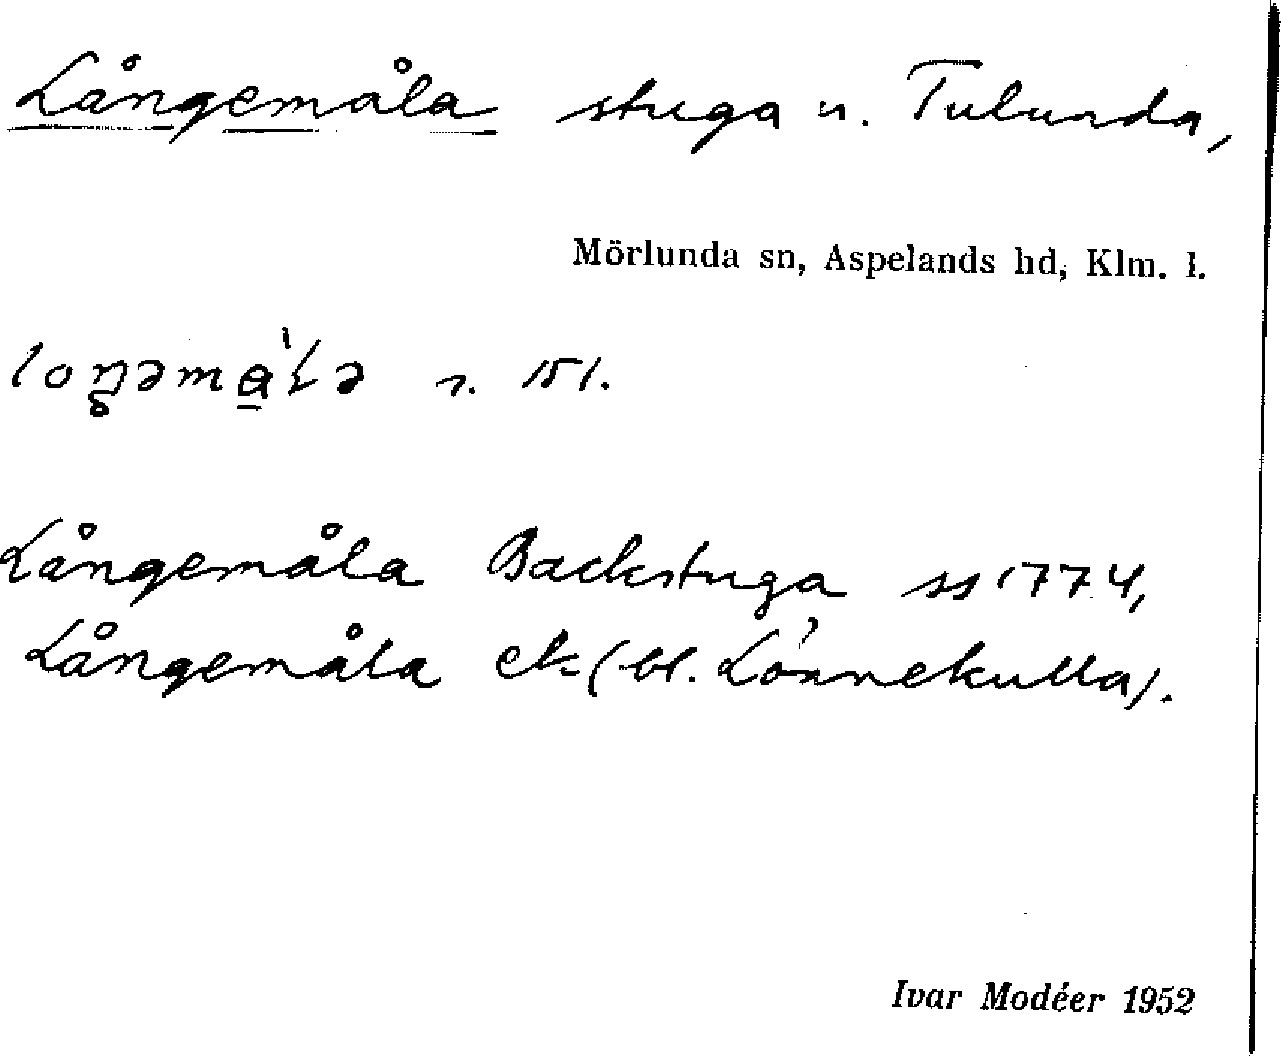 Långemåla stuga u. Tulunda,
Mörlunda sn, Aspelands hd, Klm. l.
loŋəmɑ̀ɭə
Långemåla Backstuga ss 1774,
Långemåla ek (bl. Lönnekulla).
Ivar Modéer 1952